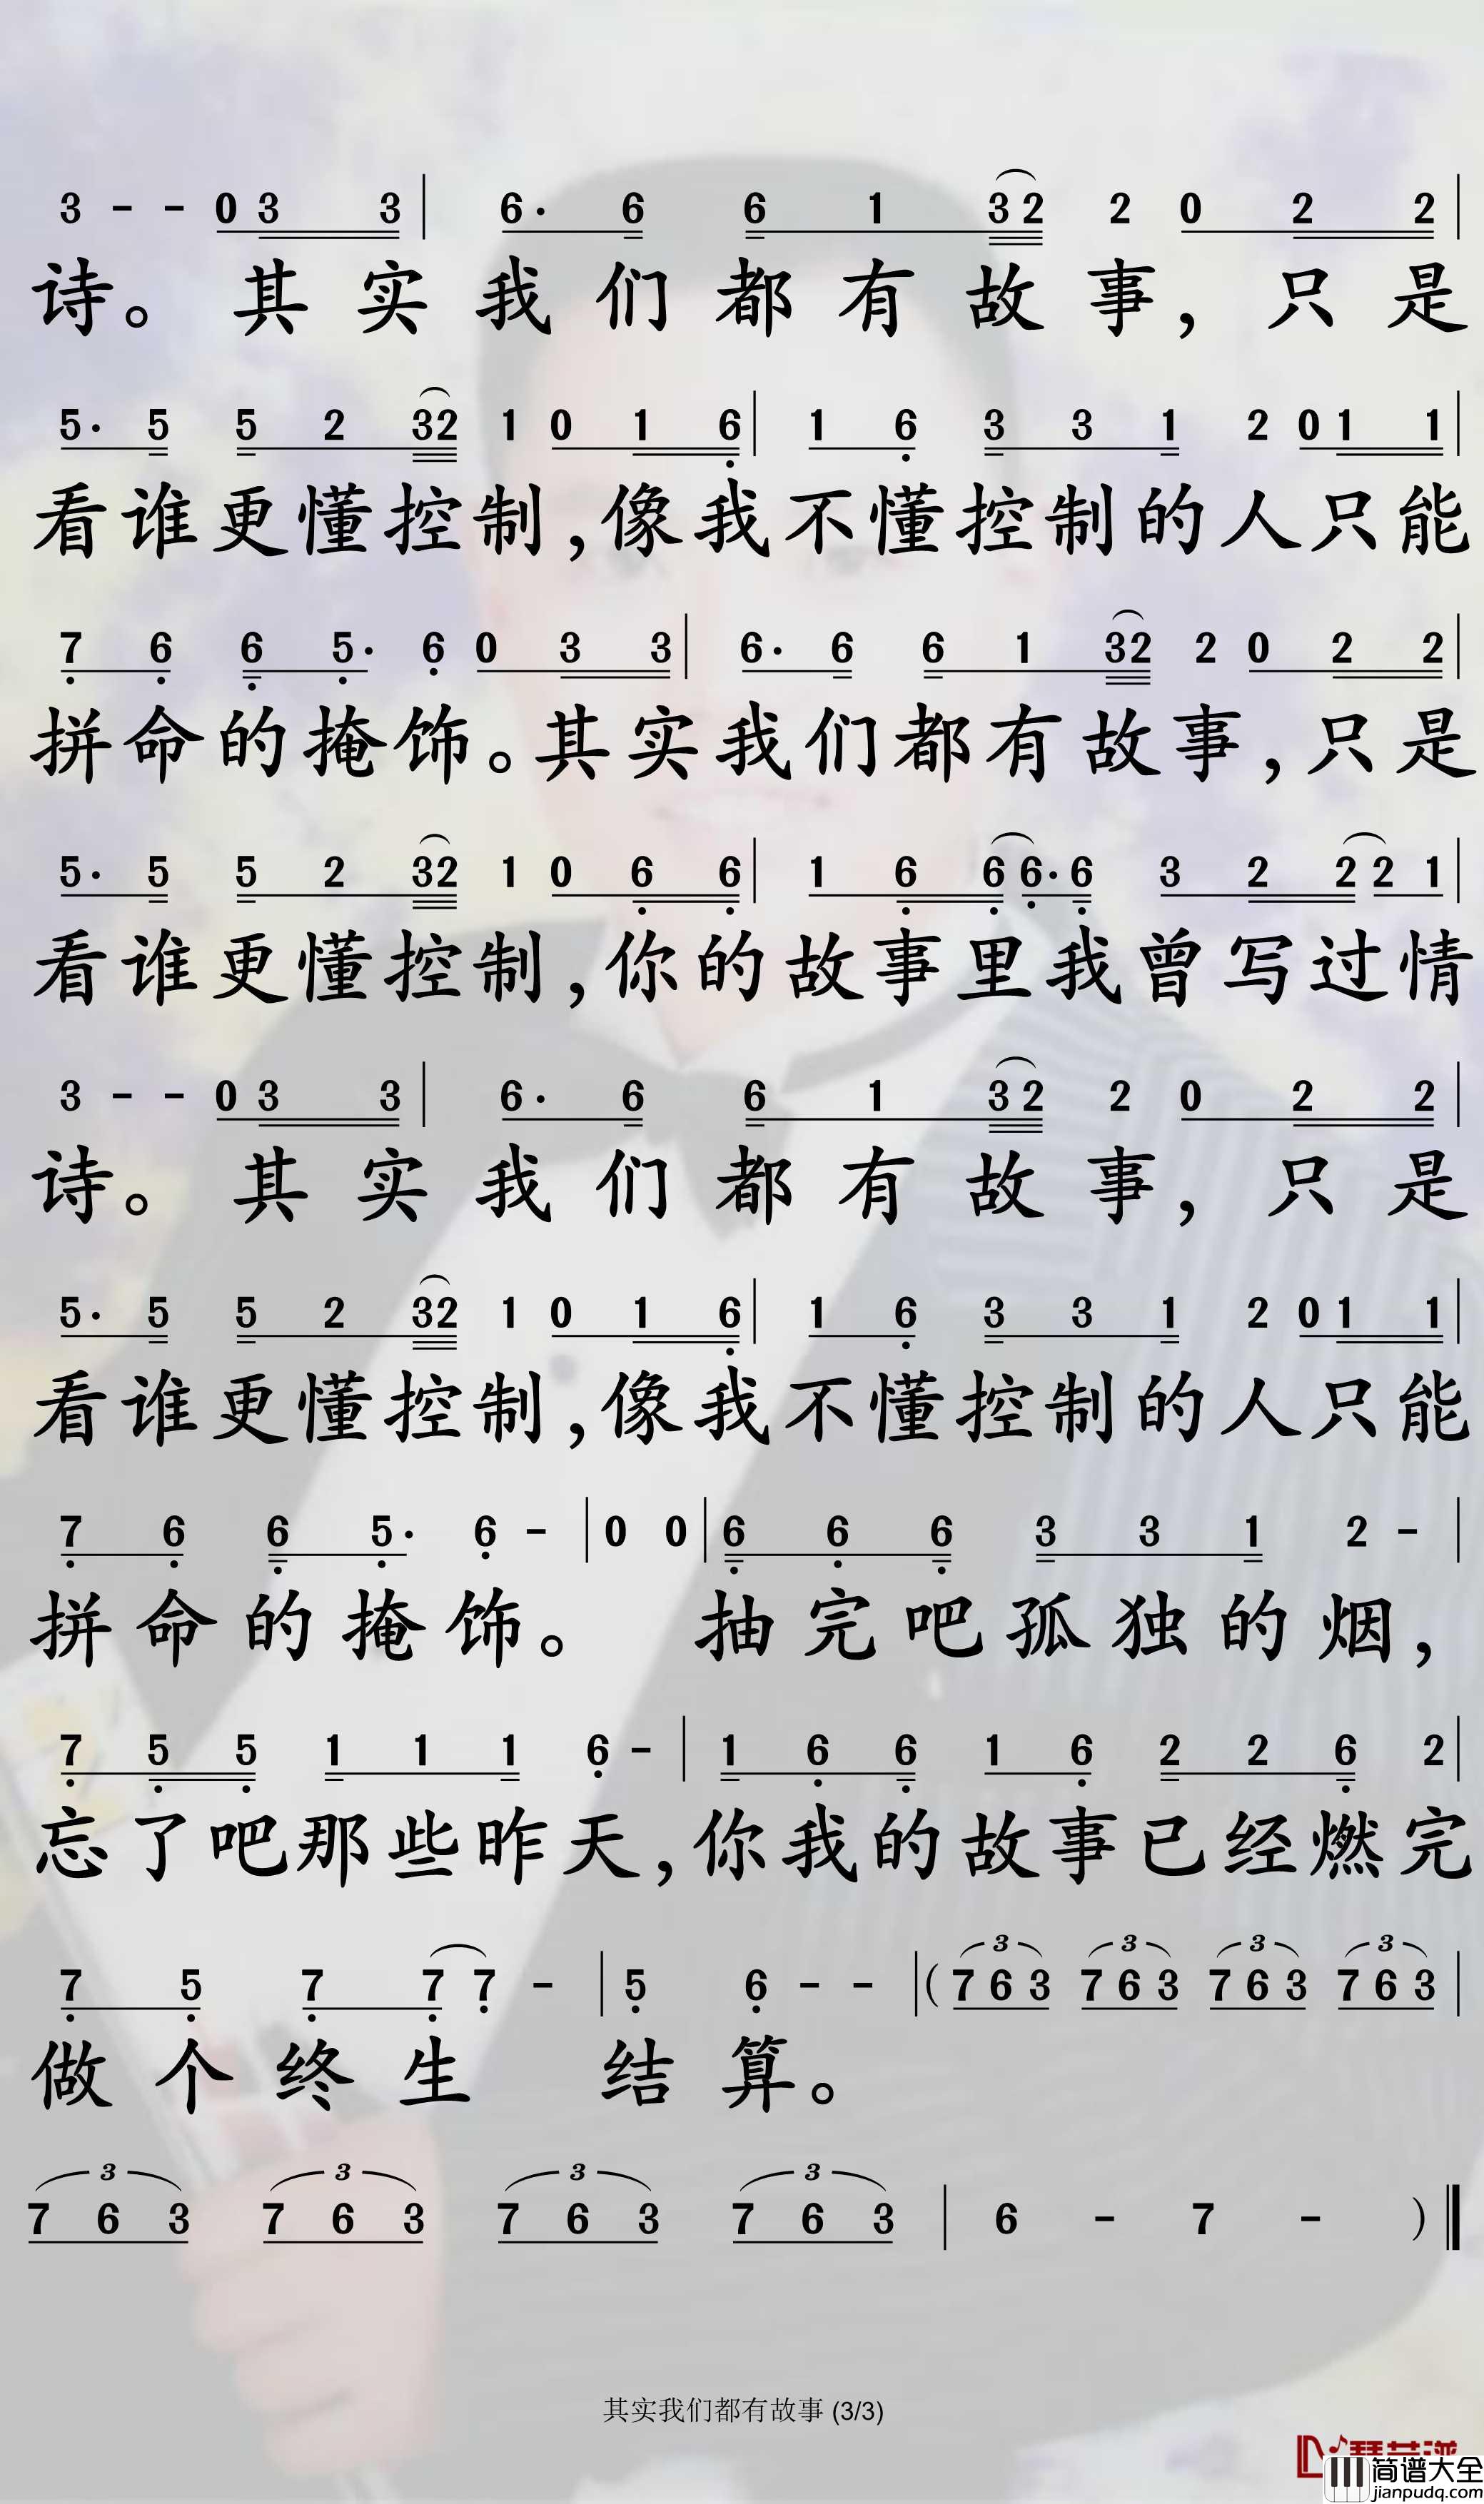 3 - - 0 3 3 | 6· 6 6 1 3 2 2 0 2 2 |
诗。其实我们都有故事，只是
5· 5 5 2 3 2 1 0 1 6 | 1 6 3 3 1 2 0 1 1 |
看谁更懂控制，像我不懂控制的人只能
7 6 6 5· 6 0 3 3 | 6· 6 6 1 3 2 2 0 2 2 |
拼命的掩饰。其实我们都有故事，只是
5· 5 5 2 3 2 1 0 6 6 | 1 6 6 6· 6 3 2 2 2 1 |
看谁更懂控制，你的故事里我曾写过情
3 - - 0 3 3 | 6· 6 6 1 3 2 2 0 2 2 |
诗。其实我们都有故事，只是
5· 5 5 2 3 2 1 0 1 6 | 1 6 3 3 1 2 0 1 1 |
看谁更懂控制，像我不懂控制的人只能
7 6 6 5· 6 - | 0 0 | 6 6 6 3 3 1 2 - |
拼命的掩饰。抽完吧孤独的烟，
7 5 5 1 1 1 6 - | 1 6 6 1 6 2 2 6 2 |
忘了吧那些昨天，你我的故事已经燃完
7 5 7 7 7 - | 5 6 - - | (3 7 6 3 3 7 6 3 3 7 6 3 3 7 6 3 |
做个终生结算。
3 7 6 3 3 7 6 3 3 7 6 3 3 7 6 3 | 6 - 7 - ) ‖
其实我们都有故事 (3/3)
简谱大全
jianpudq.com